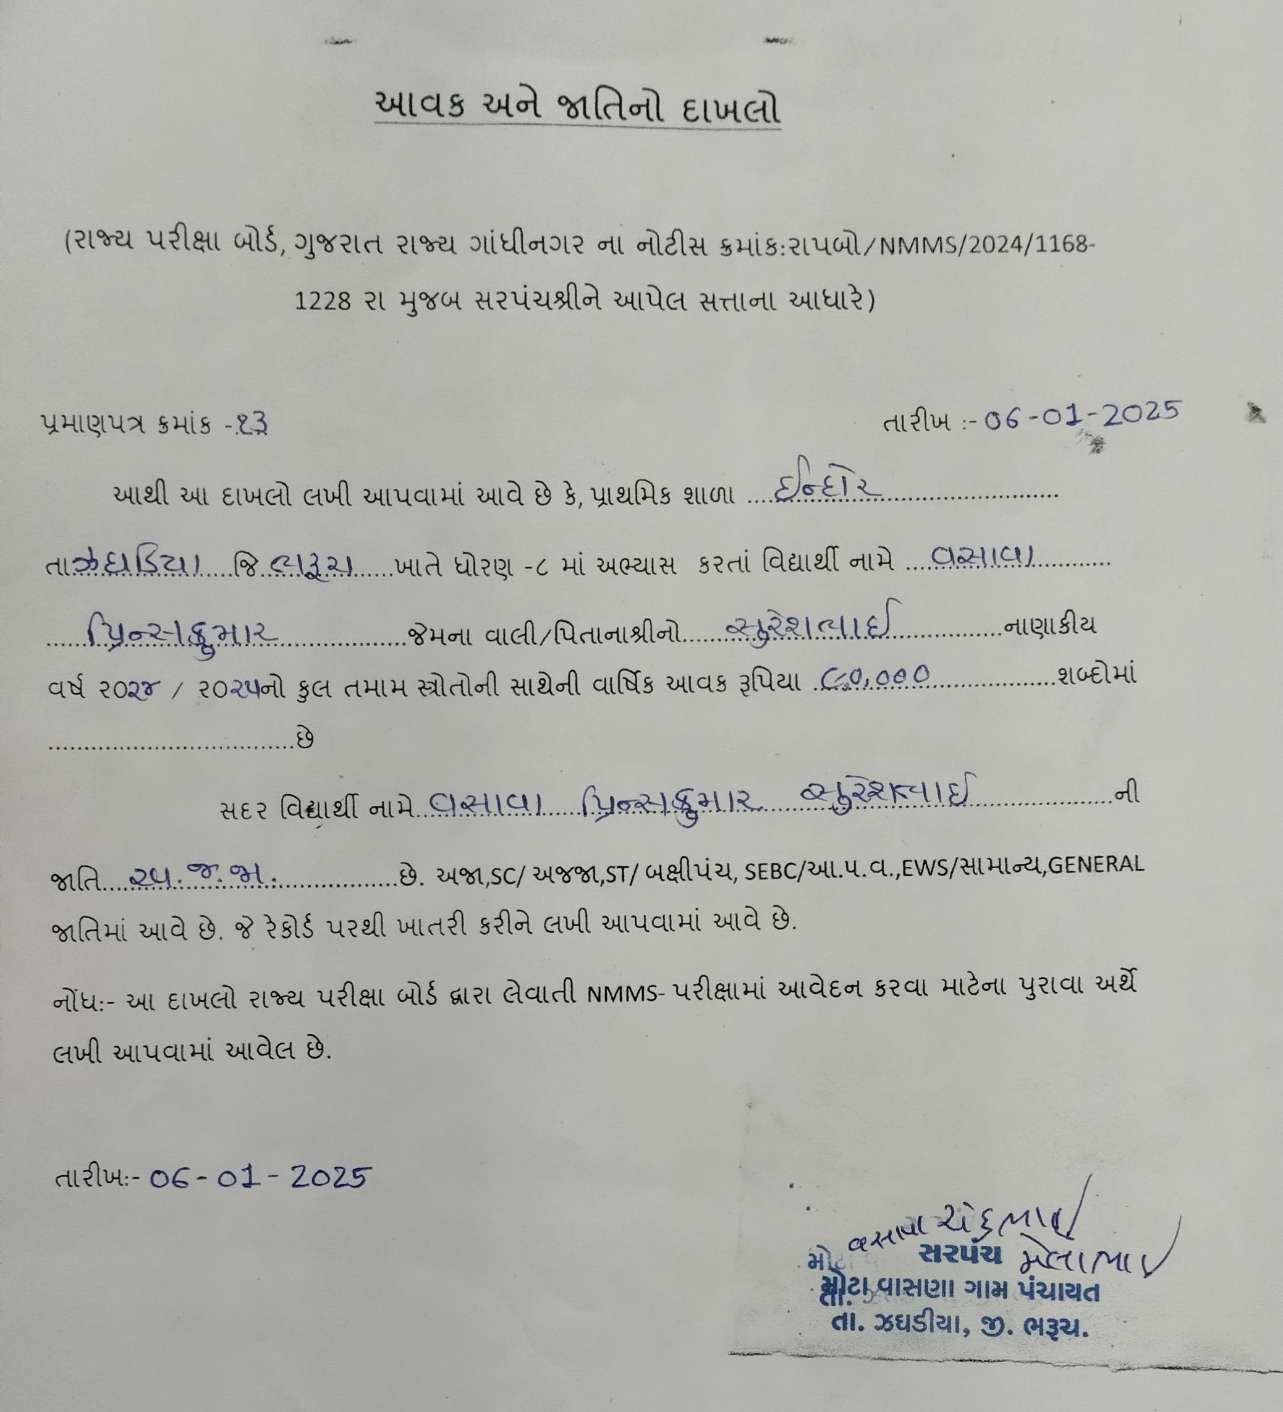 આવક અને જાતિનો દાખલો
(રાજ્ય પરીક્ષા બોર્ડ, ગુજરાત રાજ્ય ગાંધીનગર ના નોટીસ ક્રમાંક:રાપબો/NMMS/2024/1168-
1228 રા મુજબ સરપંચશ્રીને આપેલ સત્તાના આધારે)
પ્રમાણપત્ર ક્રમાંક -૧૩ તારીખ :- 06-01-2025
આથી આ દાખલો લખી આપવામાં આવે છે કે, પ્રાથમિક શાળા ....ઈન્દોર..........................
તા.ઝઘડિયા....જિ.ભરૂચ......ખાતે ધોરણ -૮ માં અભ્યાસ કરતાં વિદ્યાર્થી નામે ....વસાવા...........
.....પ્રિન્સકુમાર..................જેમના વાલી/પિતાનાશ્રીનો......સુરેશભાઈ................નાણાકીય
વર્ષ ૨૦૨૪ / ૨૦૨૫નો કુલ તમામ સ્ત્રોતોની સાથેની વાર્ષિક આવક રૂપિયા .૮૦,૦૦૦..................શબ્દોમાં
...................................છે
સદર વિદ્યાર્થી નામે..વસાવા.....પ્રિન્સકુમાર.....સુરેશભાઈ....................ની
જાતિ....અ.જ.જા..................છે. અજા,SC/ અજજા,ST/ બક્ષીપંચ, SEBC/આ.પ.વ.,EWS/સામાન્ય,GENERAL
જાતિમાં આવે છે. જે રેકોર્ડ પરથી ખાતરી કરીને લખી આપવામાં આવે છે.
નોંધ:- આ દાખલો રાજ્ય પરીક્ષા બોર્ડ દ્વારા લેવાતી NMMS- પરીક્ષામાં આવેદન કરવા માટેના પુરાવા અર્થે
લખી આપવામાં આવેલ છે.
તારીખ:- 06-01-2025
વસાવા
સરપંચ
મોટા વાસણા ગામ પંચાયત
તા. ઝઘડીયા, જી. ભરૂચ.